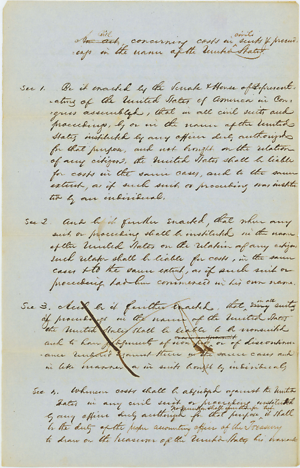 An act, concerning costs in civil suits & proceed-
ings in the name of the United States
Sec 1. Be it enacted by the Senate & House of Represent-
atives of the United States of America in Con-
gress assembled, that in all civil suits and
proceedings, by or in the name of the United
States instituted by any officer duly authorized
for that purpose, and not brought on the relation
of any citizen, the United States shall be liable
for costs in the same cases, and to the same
extent, as if such suit or proceeding was institu-
ted by an individual.
Sec 2. And be it further enacted, that when any
suit or proceeding shall be instituted in the name
of the United States on the relation of any citizen
such relator shall be liable for costs, in the same
cases & to the same extent, as if such suit or
proceeding had been commenced in his own name.
Sec 3. And be it further enacted, that in all suits
& proceedings in the name of the United States
the United States shall be liable to be nonsuited
and to have judgments of discontinu-
ance entered against them in the same cases and
in like manner as in suits brought by individuals,
Sec 4. Whenever costs shall be adjudged against the United
States in any civil suit or proceeding instituted
by any officer duly authorized for that purpose, it shall
be the duty of the proper accounting officer of the Treasury
to draw on the Treasurer of the United States his warrant